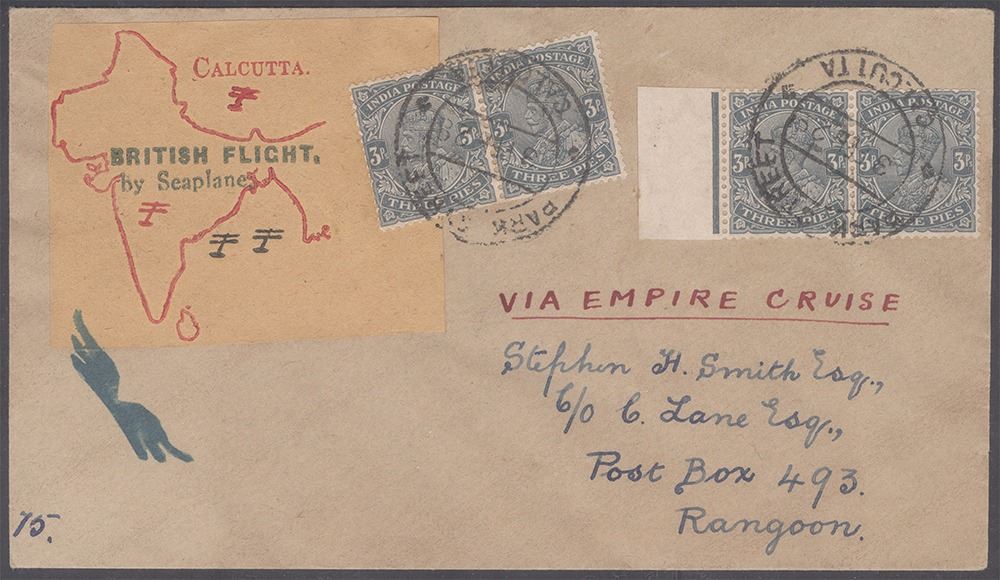 CALCUTTA.
BRITISH FLIGHT.
by Seaplanes
INDIA POSTAGE
3P. 3P.
THREE PIES
INDIA POSTAGE
3P. 3P.
THREE PIES
PARK STREET
CAL
INDIA POSTAGE
3P. 3P.
THREE PIES
INDIA POSTAGE
3P. 3P.
THREE PIES
PARK STREET
CALCUTTA
VIA EMPIRE CRUISE
Stephen H. Smith Esq.,
C/o C. Lane Esq.,
Post Box 493.
Rangoon.
75.